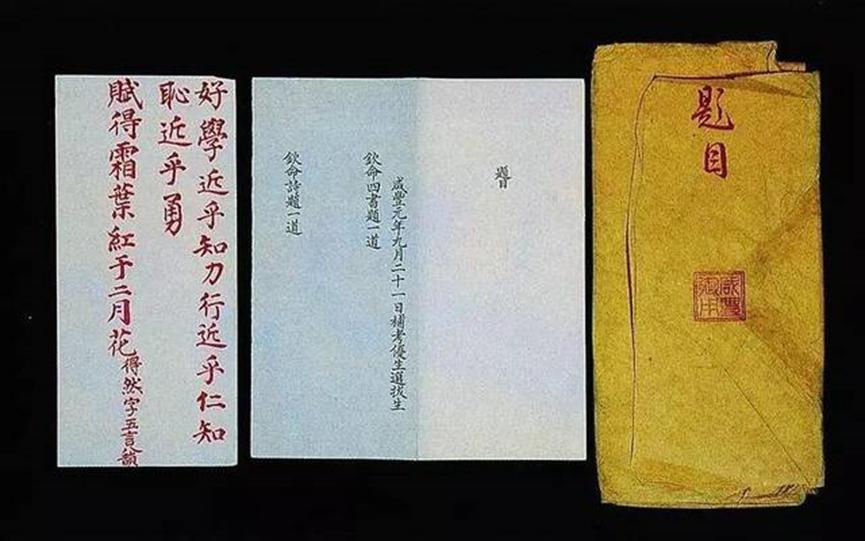 題目
咸豐御用
題目
咸豐元年九月二十一日補考優生選拔生
欽命四書題一道
欽命詩題一道
好學近乎知力行近乎仁知
恥近乎勇
賦得霜葉紅于二月花得然字五言八韻